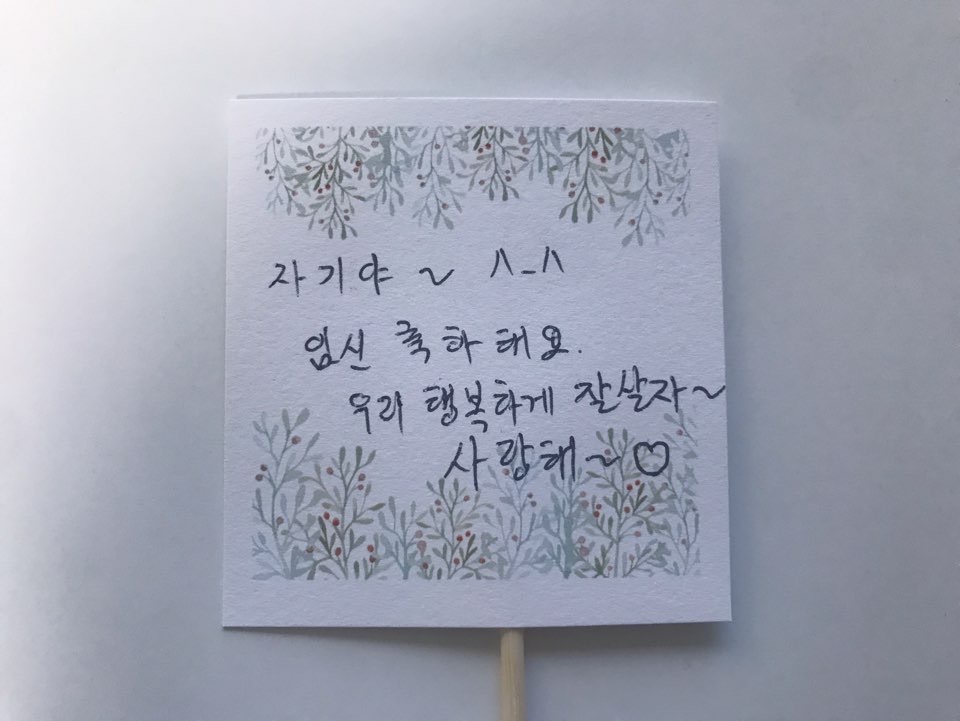 자기야 ~ ^_^
임신 축하해요.
우리 행복하게 잘살자~
사랑해~♡